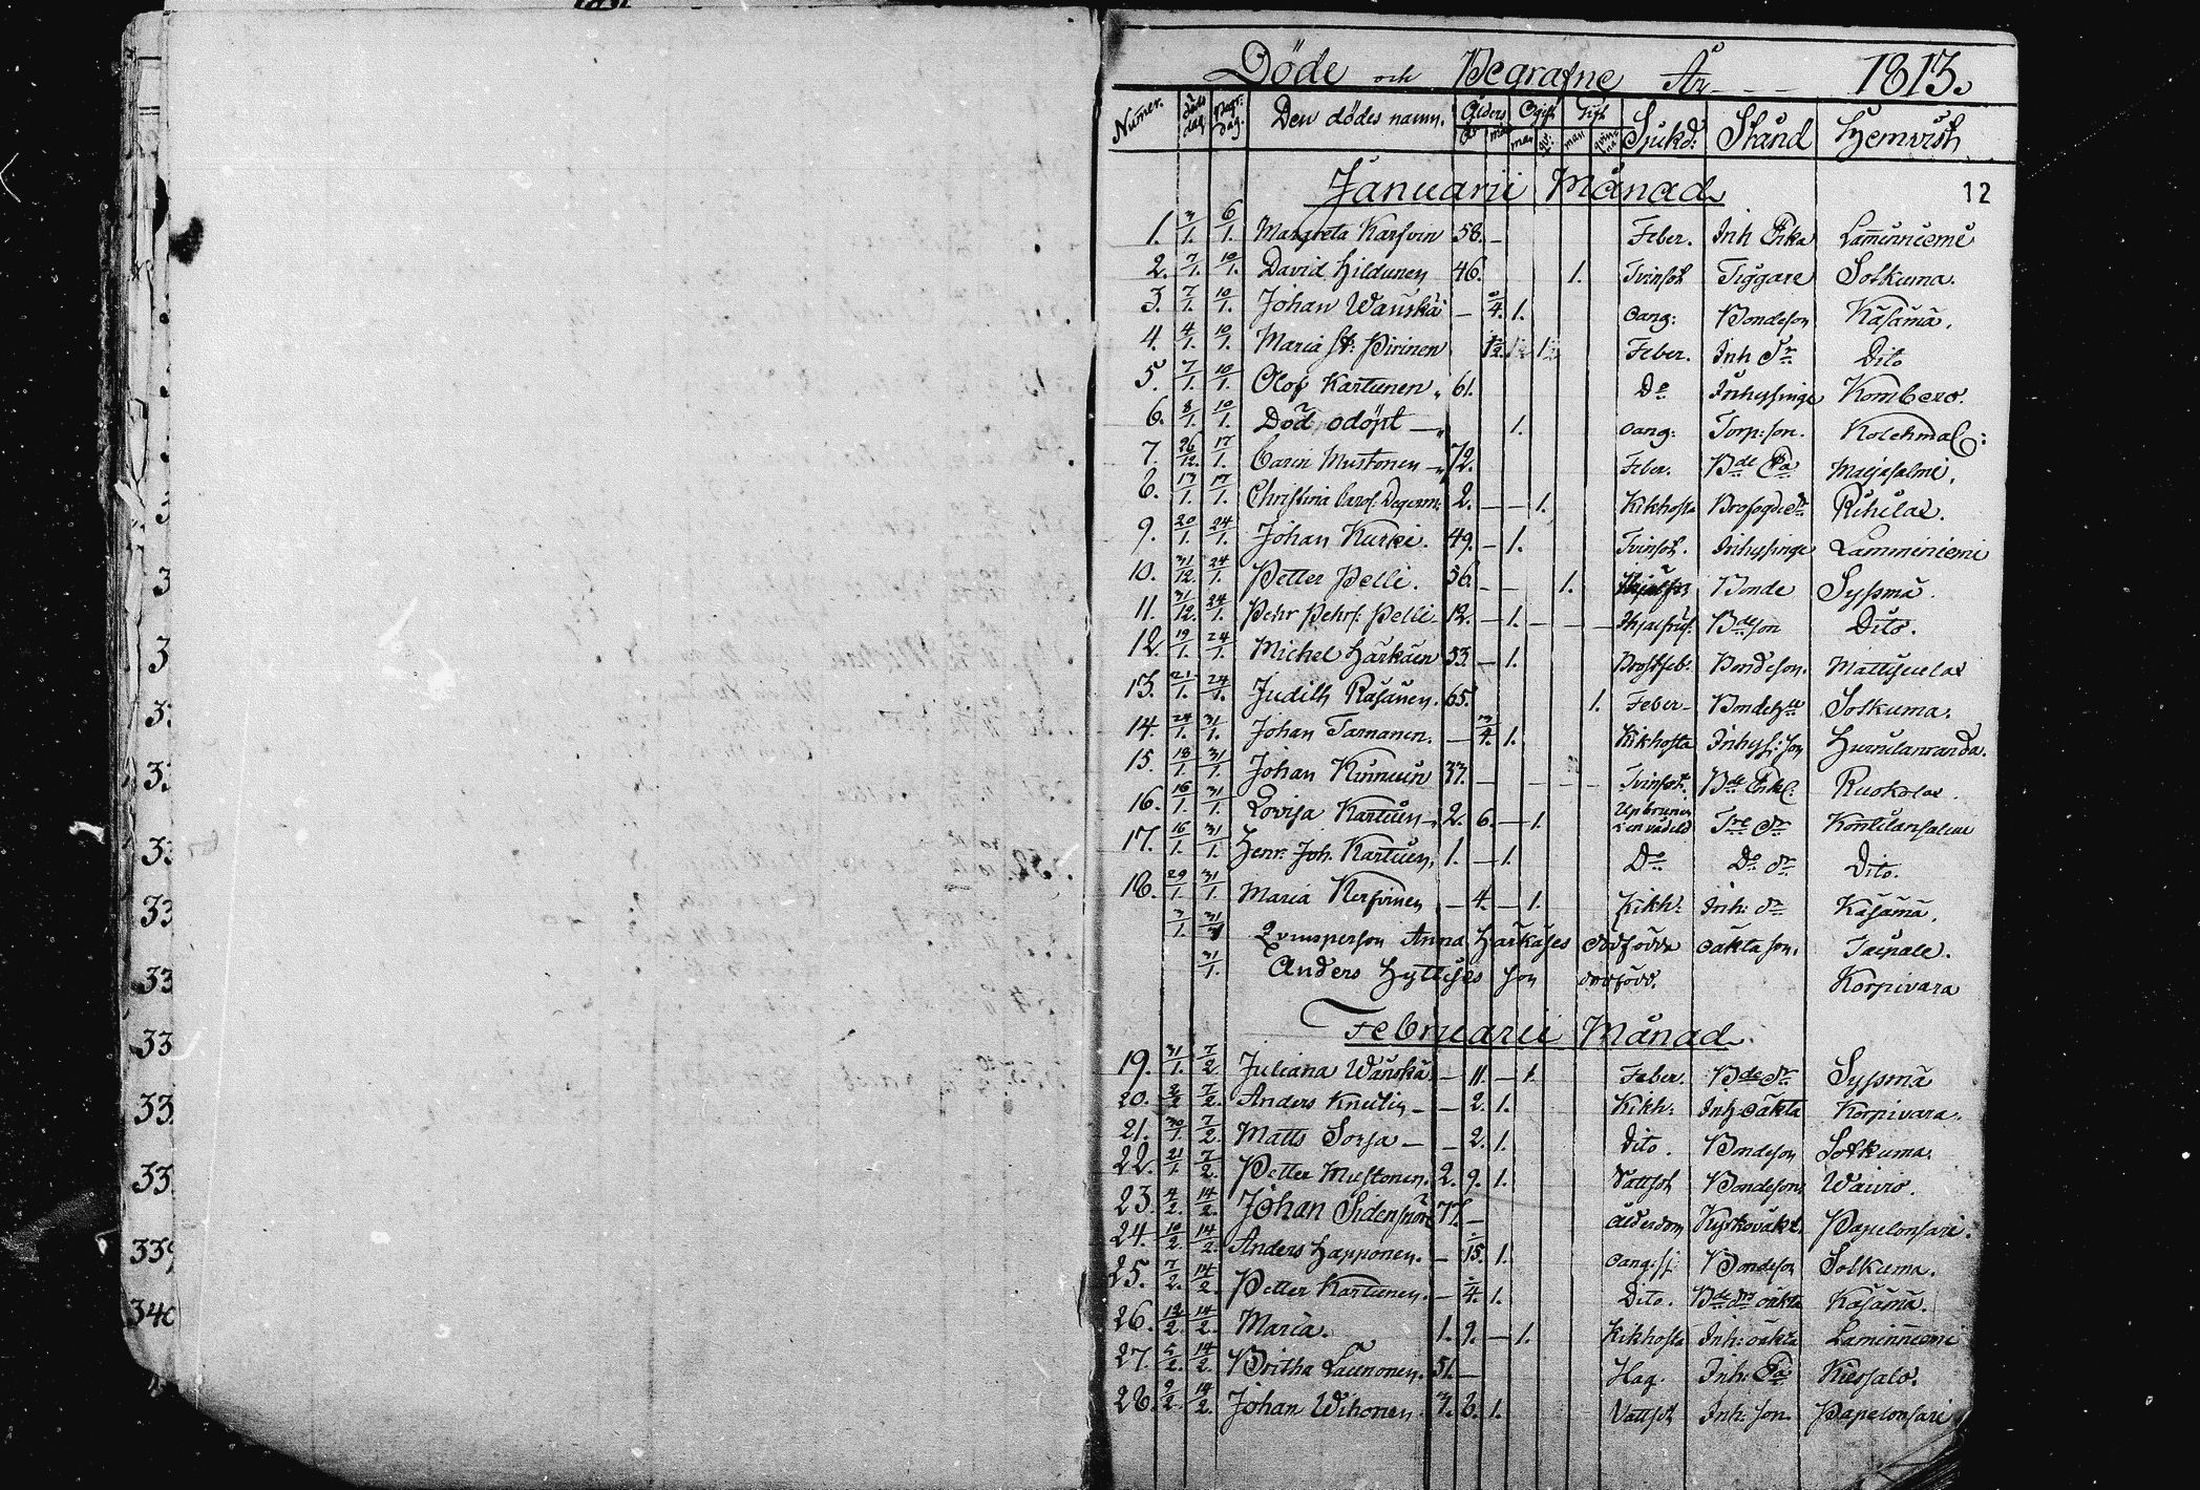 Döde och Begrafne År 1813.
Numer. döds dag Begr: dag. Den dödes namn. Ålders Ogift Gift Sjukd: Stånd Hemvist
år mån man qv: man qvinna
Januarii Månad
12
1. 3/1. 6/1. Margreta Karfvin 58. – Feber. Inh Enka Lamminniemi
2. 7/1. 10/1. David Hildunen 46. 1. Tvinsot Tiggare Sotkuma.
3. 7/1. 10/1. Johan Wänskä – 4. 1. oang: Bondeson Käsämä.
4. 4/1. 10/1. Maria Pirinen Feber. Inh Dr Dito
5. 7/1. 10/1. Olof Kartunen 61. Do Inhyssinge Kombero.
6. 8/1. 10/1. Död odöpt — 1. oang: Torp: son. Kolehmal:
7. 26/12. 17/1. Carin Mustonen 72. Feber. Bde Ea Marjasalmi.
8. 13/1. 17/1. Christina Carol: Degerm: 2. – – 1. Kikhosta Riihilax.
9. 20/1. 24/1. Johan Kurki. 49. – 1. Tvinsot. Inhyssinge Lamminiemi
10. 31/12. 24/1. Petter Pelli. 56. – – 1. Bonde Syssmä.
11. 31/12. 24/1. Pehr Pehrs: Pelli 12. – 1. – – – Ihjälfrus. Bde son Dito.
12. 19/1. 24/1. Michel Härkäin 53. – 1. Brostfeb: Bondeson. Mattisenlax
13. 21/1. 24/1. Judith Räsänen. 65. 1. Feber – Sotkuma.
14. 24/1. 31/1. Johan Tarnanen. – 3/4. 1. Kikhosta Inhyss: son Hurulanranda.
15. 18/1. 31/1. Johan Kinnuin 37. – – – – Tvinsot. Bde Enkl. Ruokolax.
16. 16/1. 31/1. Lovisa Kartuin 2. 6. – 1. Upbrunnen i en vådeld Tre Dr Kontilansalmi
17. 16/1. 31/1. Henr. Joh. Kartuin, 1. – 1. Do Do Dr Dito.
18. 29/1. 31/1. Maria Kerfvinen – 4. – 1. Kikh: Inh: Dr Käsämä.
3/1. 31/1. Qvinsperson Anna Härkäjes dödfödde oäkta son. Taipale.
31/1. Anders Hyttijes son dödfödd. Korpivara
Februarii Månad.
19. 31/1. 7/2. Juliana Wänskä – 11. – 1. Feber. Bde Dr Syssmä
20. 2/2. 7/2. Anders Knutin – – 2. 1. Kikh: Inh oäkta Korpivara.
21. 30/1. 7/2. Matts Sorsa – – 2. 1. Dito. Bondeson Sotkuma.
22. 21/1. 7/2. Petter Mustonen. 2. 9. 1. Vattsot Bondeson Waivio.
23. 4/2. 14/2. Johan Sidensnöre 77. – Ålderdom Kyrkovakt. Papelonsari.
24. 10/2. 14/2. Anders Happonen. – 15. 1. oang: sj: Bondeson Sotkuma.
25. 7/2. 14/2. Petter Kartunen. – 4. 1. Dito. Bde Drs oäkta Käsämä.
26. 12/2. 14/2. Maria. 1. 9. – 1. Kikhosta Inh: oäkta Laminniemi
27. 5/2. 14/2. Britha Launonen. 51. – Hag. Inh: Ea Kiessalo.
28. 9/2. 14/2. Johan Wihonen. 7. 6. 1. Vattsot Inh: son. Papelonsari
3
3
3
33
33
33
33
33
33
33
33
339
340